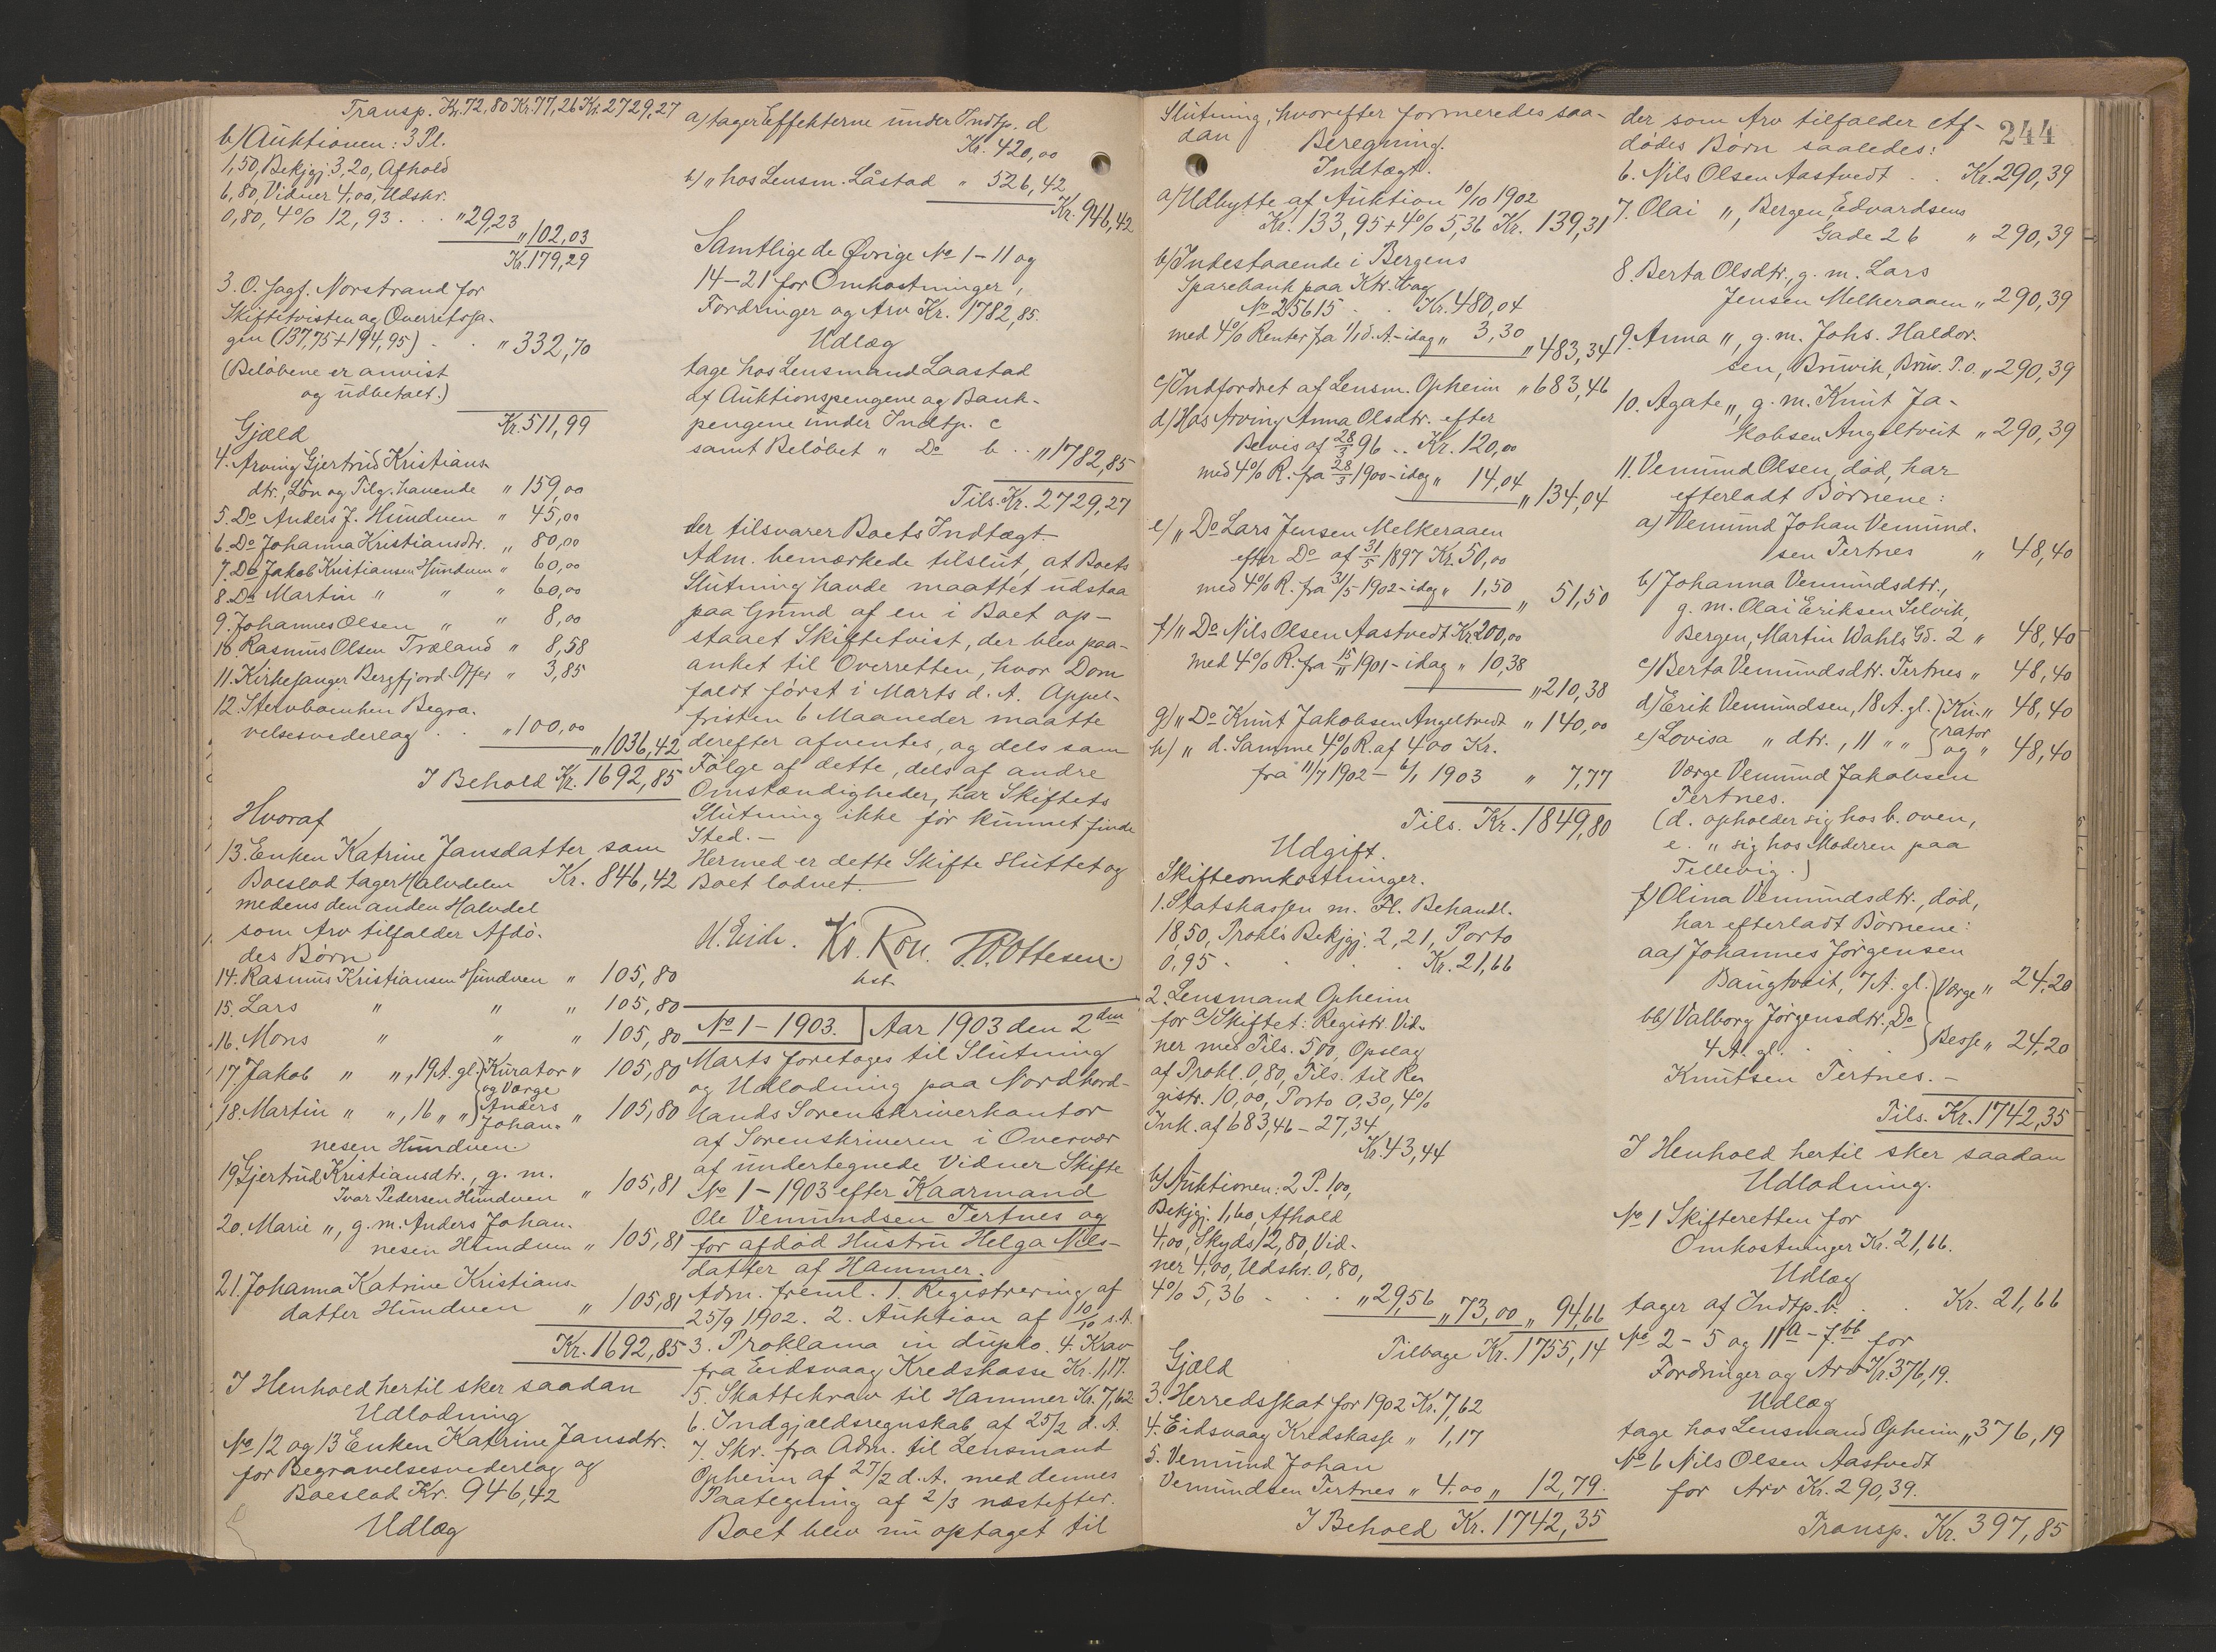 Transp. Kr. 72,80 Kr. 77,26 Kr. 2729,27
b/ Auktionen: 3 Pl.
1,50, Bekjgj. 3,20, Afhold
6,80, Vidner 4,00, Udskr.
0,80, 4% 12,93 . . . " 29,23
" 102,03
Kr. 179,29
3. O. Sagf. Norstrand for
Skiftetvisten og Overretssa-
gen (137,75 + 194,95) . . " 332,70
(Beløbene er anvist
og udbetalt.)
Kr. 511,99
Gjæld
4. Arving Gjertrud Kristians-
dtr., Løn og Tilg. havende " 159,00
5. Do Anders J. Hundven " 45,00
6. Do Johanna Kristiansdtr. " 80,00
7. Do Jakob Kristiansen Hundven " 60,00
8. Do Martin " " " 60,00
9. Johannes Olsen " " 8,00
10. Rasmus Olsen Træland " 8,58
11. Kirkesanger Bergfjord. Offer " 3,85
12. Stervboenken Begra-
velsesvederlag . . " 100,00
" 1036,42
I Behold Kr. 1692,85
Hvoraf
13. Enken Katrine Jansdatter som
Boeslod tager Halvdelen Kr. 846,42
medens den anden Halvdel
som Arv tilfalder Afdø-
des Børn
14. Rasmus Kristiansen Hundven " 105,80
15. Lars " " " 105,80
16. Mons " " " 105,80
17. Jakob " ", 19 A. gl. } Kurator " 105,80
og Værge
18. Martin " ", 16 " " } Anders " 105,80
Johan-
nesen Hundven.
19. Gjertrud Kristiansdtr., g. m.
Ivar Pedersen Hundven " 105,81
20. Marie ", g. m. Anders Johan-
nesen Hundven " 105,81
21. Johanna Katrine Kristians-
datter Hundven " 105,81
Kr. 1692,85
I Henhold hertil sker saadan
Udlodning
No 12 og 13 Enken Katrine Jansdtr.
for Begravelsesvederlag og
Boeslod Kr. 946,42
Udlæg
a/ tager Effekterne under Indtp. d
Kr. 420,00
b/ " hos Lensm. Låstad " 526,42
Kr. 946,42
Samtlige de Øvrige No 1 – 11 og
14 – 21 for Omkostninger,
Fordringer og Arv Kr. 1782,85.
Udlæg
tage hos Lensmand Laastad
af Auktionspengene og Bank-
pengene under Indtp. c
samt Beløbet " Do b . . " 1782,85
Tils. Kr. 2729,27
der tilsvarer Boets Indtægt. –
Adm. bemærkede tilslut, at Boets
Slutning havde maattet udstaa
paa Grund af en i Boet op-
staaet Skiftetvist, der blev paa-
anket til Overretten, hvor Dom
faldt først i Marts d. A. Appel-
fristen 6 Maaneder maatte
derefter afventes, og dels som
Følge af dette, dels af andre
Omstændigheder, har Skiftets
Slutning ikke før kunnet finde
Sted. –
Hermed er dette Skifte sluttet og
Boet lodnet. –
H. Eide. Kr. Ron. P. Ottesen.
bst.
No 1 – 1903. Aar 1903 den 2den
Marts foretoges til Slutning
og Udlodning paa Nordhord-
lands Sorenskriverkontor
af Sorenskriveren i Overvær
af undertegnede Vidner Skifte
No 1 – 1903 efter Kaarmand
Ole Vemundsen Tertnes og
for afdød Hustru Helga Nils-
datter af Hammer.
Adm. freml. 1. Registrering af
25/9 1902. 2. Auktion af 10/10 s. A.
3. Proklama in duplo. 4. Krav
fra Eidsvaag Kredskasse Kr. 1,17.
5. Skattekrav til Hammer Kr. 7,62
6. Indgjældsregnskab af 25/2 d. A.
7. Skr. fra Adm. til Lensmand
Opheim af 27/2 d. A. med dennes
Paategning af 2/3 næstefter.
Boet blev nu optaget til
Slutning, hvorefter formeredes saa-
dan Beregning.
Indtægt.
a/ Udbytte af Auktion 10/10 1902
Kr. 133,95 + 4% 5,36 Kr. 139,31
b/ Indestaaende i Bergens
Sparebank paa Ktr. bog
No 25615 . . Kr. 480,04
med 4% Renter fra 1/1 d. A. – idag " 3,30
" 483,34
c/ Indfordret af Lensm. Opheim " 683,46
d/ Hos Arving Anna Olsdtr. efter
Bevis af 28/3 96 . . Kr. 120,00
med 4% R. fra 28/3 1900 – idag " 14,04
" 134,04
e/ " Do Lars Jensen Melkeraaen
efter Do af 31/5 1897 Kr. 50,00
med 4% R. fra 31/5 1902 – idag " 1,50
" 51,50
f/ " Do Nils Olsen Aastvedt Kr. 200,00
med 4% R. fra 15/11 1901 – idag " 10,38
" 210,38
g/ " Do Knut Jakobsen Angeltvedt " 140,00
h/ " d. Samme 4% R. af 400 Kr.
fra 11/7 1902 – 6/1 1903 " 7,77
Tils. Kr. 1849,80
Udgift.
Skifteomkostninger.
1. Statskassen m. Fl. Behandl.
18,50, Prokl's Bekjgj. 2,21, Porto
0,95 . . . . Kr. 21,66
2. Lensmand Opheim
for a/ Skiftet: Registr. Vid-
ner med Tils. 5,00, Opslag
af Prokl. 0,80, Tils. til Re-
gistr. 10,00, Porto 0,30, 4%
Ink. af 683,46 – 27,34
Kr. 43,44
b/ Auktionen: 2 P. 1,00,
Bekjgj. 1,60, Afhold
4,00, Skyds 12,80, Vid-
ner 4,00, Udskr. 0,80,
4% 5,36 . . . " 29,56
" 73,00 " 94,66
Tilbage Kr. 1755,14
Gjæld
3. Herredsskat for 1902 Kr. 7,62
4. Eidsvaag Kredskasse " 1,17
5. Vemund Johan
Vemundsen Tertnes " 4,00 " 12,79.
I Behold Kr. 1742,35
244
der som Arv tilfalder Af-
dødes Børn saaledes:
6. Nils Olsen Aastvedt . . Kr. 290,39
7. Olai ", Bergen, Edvardsens
Gade 26 " 290,39
8. Berta Olsdtr., g. m. Lars
Jensen Melkeraaen " 290,39
9. Anna ", g. m. Johs. Haldor-
sen, Bruvik, Bruv. P. o. " 290,39
10. Agate ", g. m. Knut Ja-
kobsen Angeltveit " 290,39
11. Vemund Olsen, død, har
efterladt Børnene:
a/ Vemund Johan Vemund-
sen Tertnes " 48,40
b/ Johanna Vemundsdtr.,
g. m. Olai Eriksen Selvik,
Bergen, Martin Wahls Gd. 2 " 48,40
c/ Berta Vemundsdtr. Tertnes " 48,40
d/ Erik Vemundsen, 18 A. gl. } Ku- " 48,40
rator
e/ Lovisa " dtr., 11 " " } og " 48,40
Værge Vemund Jakobsen
Tertnes.
(d. opholder sig hos b. oven,
e. " sig hos Moderen paa
Tellevig.)
f/ Olina Vemundsdtr., død,
har efterladt Børnene:
aa/ Johannes Jørgensen
Baugtveit, 7 A. gl. } Værge " 24,20
bb/ Valborg Jørgensdtr. Do
4 A. gl. . } Besse " 24,20
Knutsen Tertnes. –
Tils. Kr. 1742,35
I Henhold hertil sker saadan
Udlodning.
No 1 Skifteretten for
Omkostninger Kr. 21,66.
Udlæg
tager af Indtp. b. . . Kr. 21,66
No 2 – 5 og 11a – f. bb for
Fordringer og Arv Kr. 376,19.
Udlæg
tage hos Lensmand Opheim " 376,19
No 6 Nils Olsen Aastvedt
for Arv Kr. 290,39.
Transp. Kr. 397,85